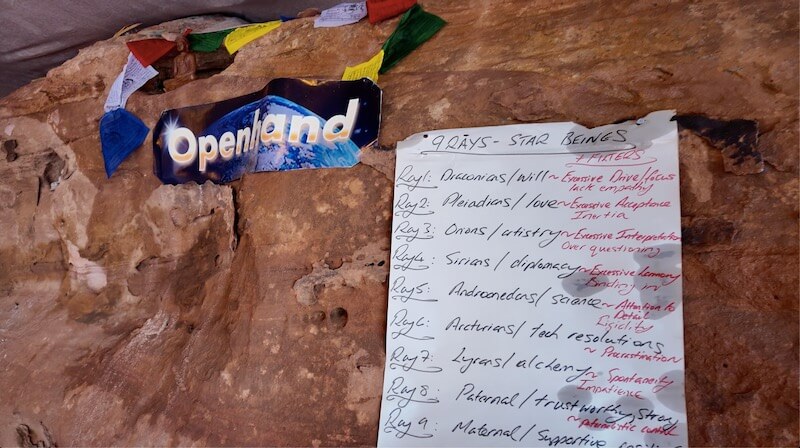 Openhand
9 RAYS - STAR BEINGS
+ FILTERS
Ray 1: Draconians/will ~ Excessive Drive/focus
lack empathy
Ray 2: Pleiadians/love ~ Excessive Acceptance
Inertia
Ray 3: Orions/artistry ~ Excessive Interpretation
Over questioning
Ray 4: Sirians/diplomacy ~ Excessive
Ray 5: Andromedans/science ~ Attention to
Detail
Rigidity
Ray 6: Arcturians/tech resolutions
~ Procrastination
Ray 7: Lyrans/alchemy ~ Spontaneity
Impatience
Ray 8: Paternal/trustworthy, strong
Ray 9: Maternal/Supportive